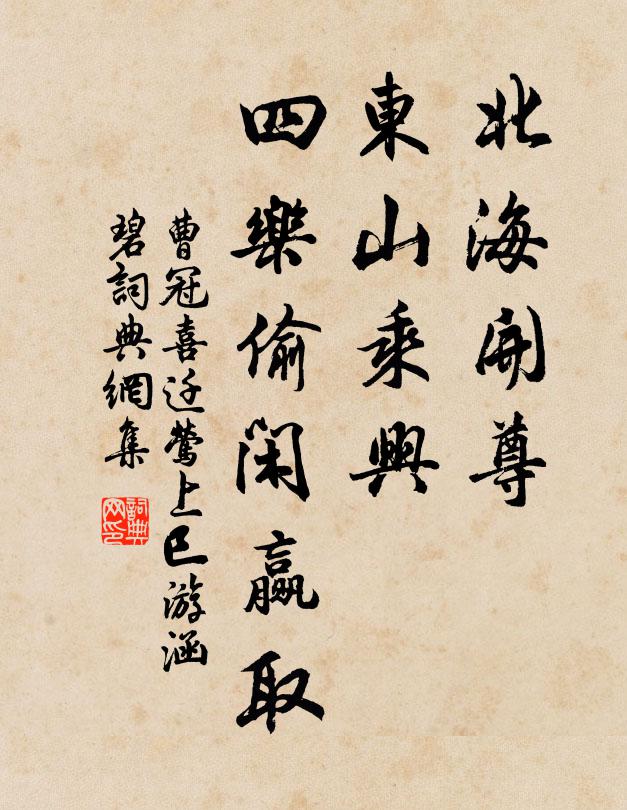 北海開尊
東山乘興
四樂偷閑贏取
曹冠喜迁鶯上巳游涵
碧詞典網集
詞典網印